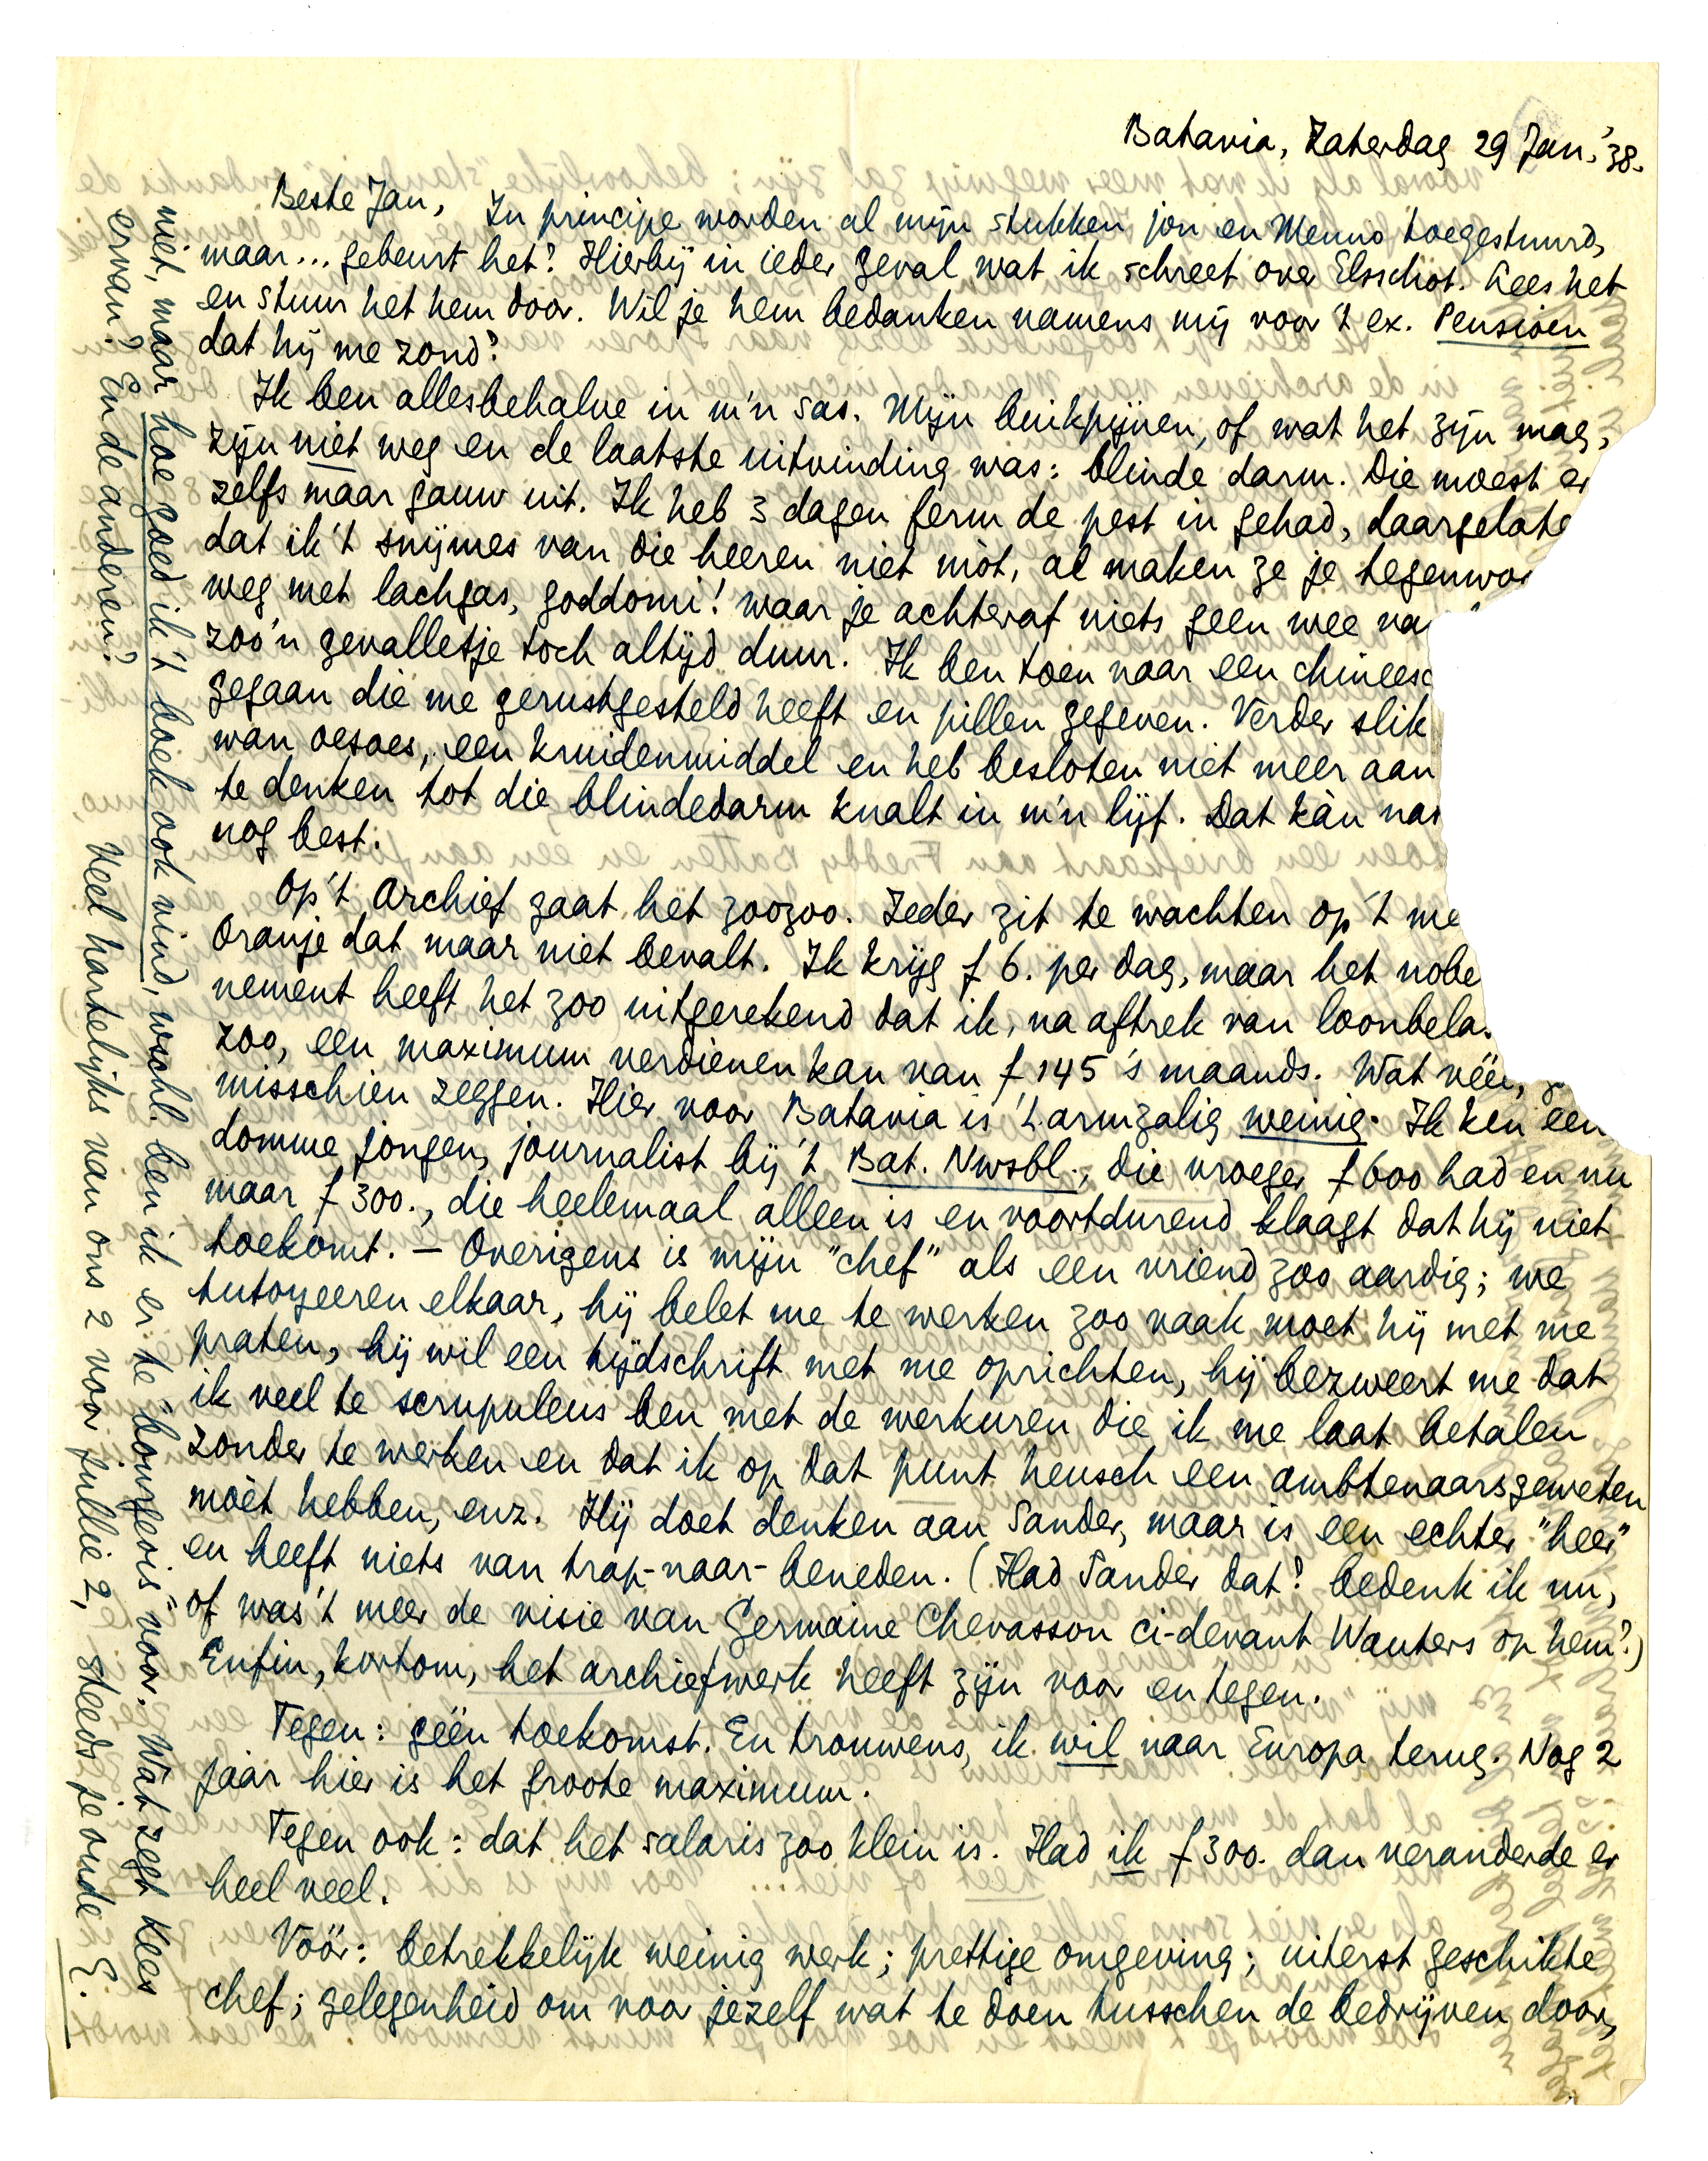 Batavia, Zaterdag 29 Jan. '38.
Beste Jan, In principe worden al mijn stukken jou en Menno toegestuurd,
maar... gebeurt het? Hierbij in ieder geval wat ik schreef over Elsschot. Lees het
en stuur het hem door. Wil je hem bedanken namens mij voor 't ex. Pensioen
dat hij me zond?
Ik ben allesbehalve in m'n sas. Mijn buikpijnen, of wat het zijn mag,
zijn niet weg en de laatste uitvinding was: blinde darm. Die moest er
zelfs maar gauw uit. Ik heb 3 dagen ferm de pest in gehad, daargelate
dat ik 't snijmes van die heeren niet mòt, al maken ze je tegenwoo
weg met lachgas, goddomi! waar je achteraf niets geen wee va
zoo'n gevalletje toch altijd duur. Ik ben toen naar een chineesc
gegaan die me gerustgesteld heeft en pillen gegeven. Verder slik
wan oesoes, een kruidenmiddel en heb besloten niet meer aan
te denken tot die blindedarm knalt in m'n lijf. Dat kàn nat
nog best.
Op 't Archief gaat het zoozoo. Ieder zit te wachten op 't me
Oranje dat maar niet bevalt. Ik krijg f 6. per dag, maar het nobe
nement heeft het zoo uitgerekend dat ik, na aftrek van loonbela
zoo, een maximum verdienen kan van f 145 's maands. Wat véél,
misschien zeggen. Hier voor Batavia is 't armzalig weinig. Ik ken een
domme jongen, journalist bij 't Bat. Nwsbl., die vroeger f 600 had en nu
maar f 300., die heelemaal alleen is en voortdurend klaagt dat hij niet
toekomt. — Overigens is mijn "chef" als een vriend zoo aardig; we
tutoyeeren elkaar, hij belet me te werken zoo vaak moet hij met me
praten, hij wil een tijdschrift met me oprichten, hij bezweert me dat
ik veel te scrupuleus ben met de werkuren die ik me laat betalen
zonder te werken en dat ik op dat punt heusch een ambtenaarsgeweten
mòet hebben, enz. Hij doet denken aan Sander, maar is een echter "heer"
en heeft niets van trap-naar-beneden. (Had Sander dat? bedenk ik nu,
of was 't meer de visie van Germaine Chevasson ci-devant Wauters op hem?)
Enfin, kortom, het archiefwerk heeft zijn voor en tegen.
Tegen: géén toekomst. En trouwens, ik wil naar Europa terug. Nog 2
jaar hier is het groote maximum.
Tegen ook: dat het salaris zoo klein is. Had ik f 300. dan veranderde er
heel veel.
Vóór: betrekkelijk weinig werk; prettige omgeving; uiterst geschikte
chef; gelegenheid om voor jezelf wat te doen tusschen de bedrijven door,
niet, maar hoe goed ik 't boek ook vind, wschl. ben ik er te "bourgeois" voor. Wat zegt Kees
ervan? En de anderen?
Veel hartelijks van ons 2 voor jullie 2, steeds je oude E.